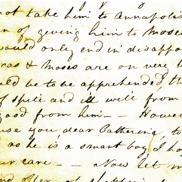 not take him to Annapolis
of giving him to Moses
would only end in disappo
& Moses are on very
to be apprehended, th
of spite and ill will from
good from him — Howeve
use you dear Catherine, to
as he is a smart boy I ho
care — Now let m